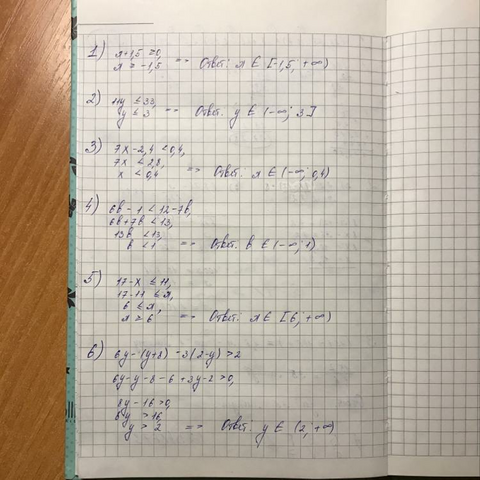 1) x+1,5 ≥0,
x ≥ -1,5 => Ответ: x ∈ [-1,5; +∞)
2) 11y ≤ 33,
y ≤ 3 => Ответ. y ∈ (-∞; 3]
3) 7x-2,4 <0,4,
7x < 2,8,
x < 0,4 => Ответ: x ∈ (-∞; 0,4)
4) 6b - 1 < 12-7b,
6b+7b < 13,
13b <13,
b < 1 => Ответ: b ∈ (-∞; 1)
5) 17-x ≤ 11,
17-11 ≤ x,
6 ≤ x,
x ≥ 6 => Ответ: x ∈ [6; +∞)
6) 6y-(y+8) -3(2-y) >2
6y-y-8-6+3y-2 >0,
8y-16 >0,
8y >16,
y > 2 => Ответ: y ∈ (2; +∞)